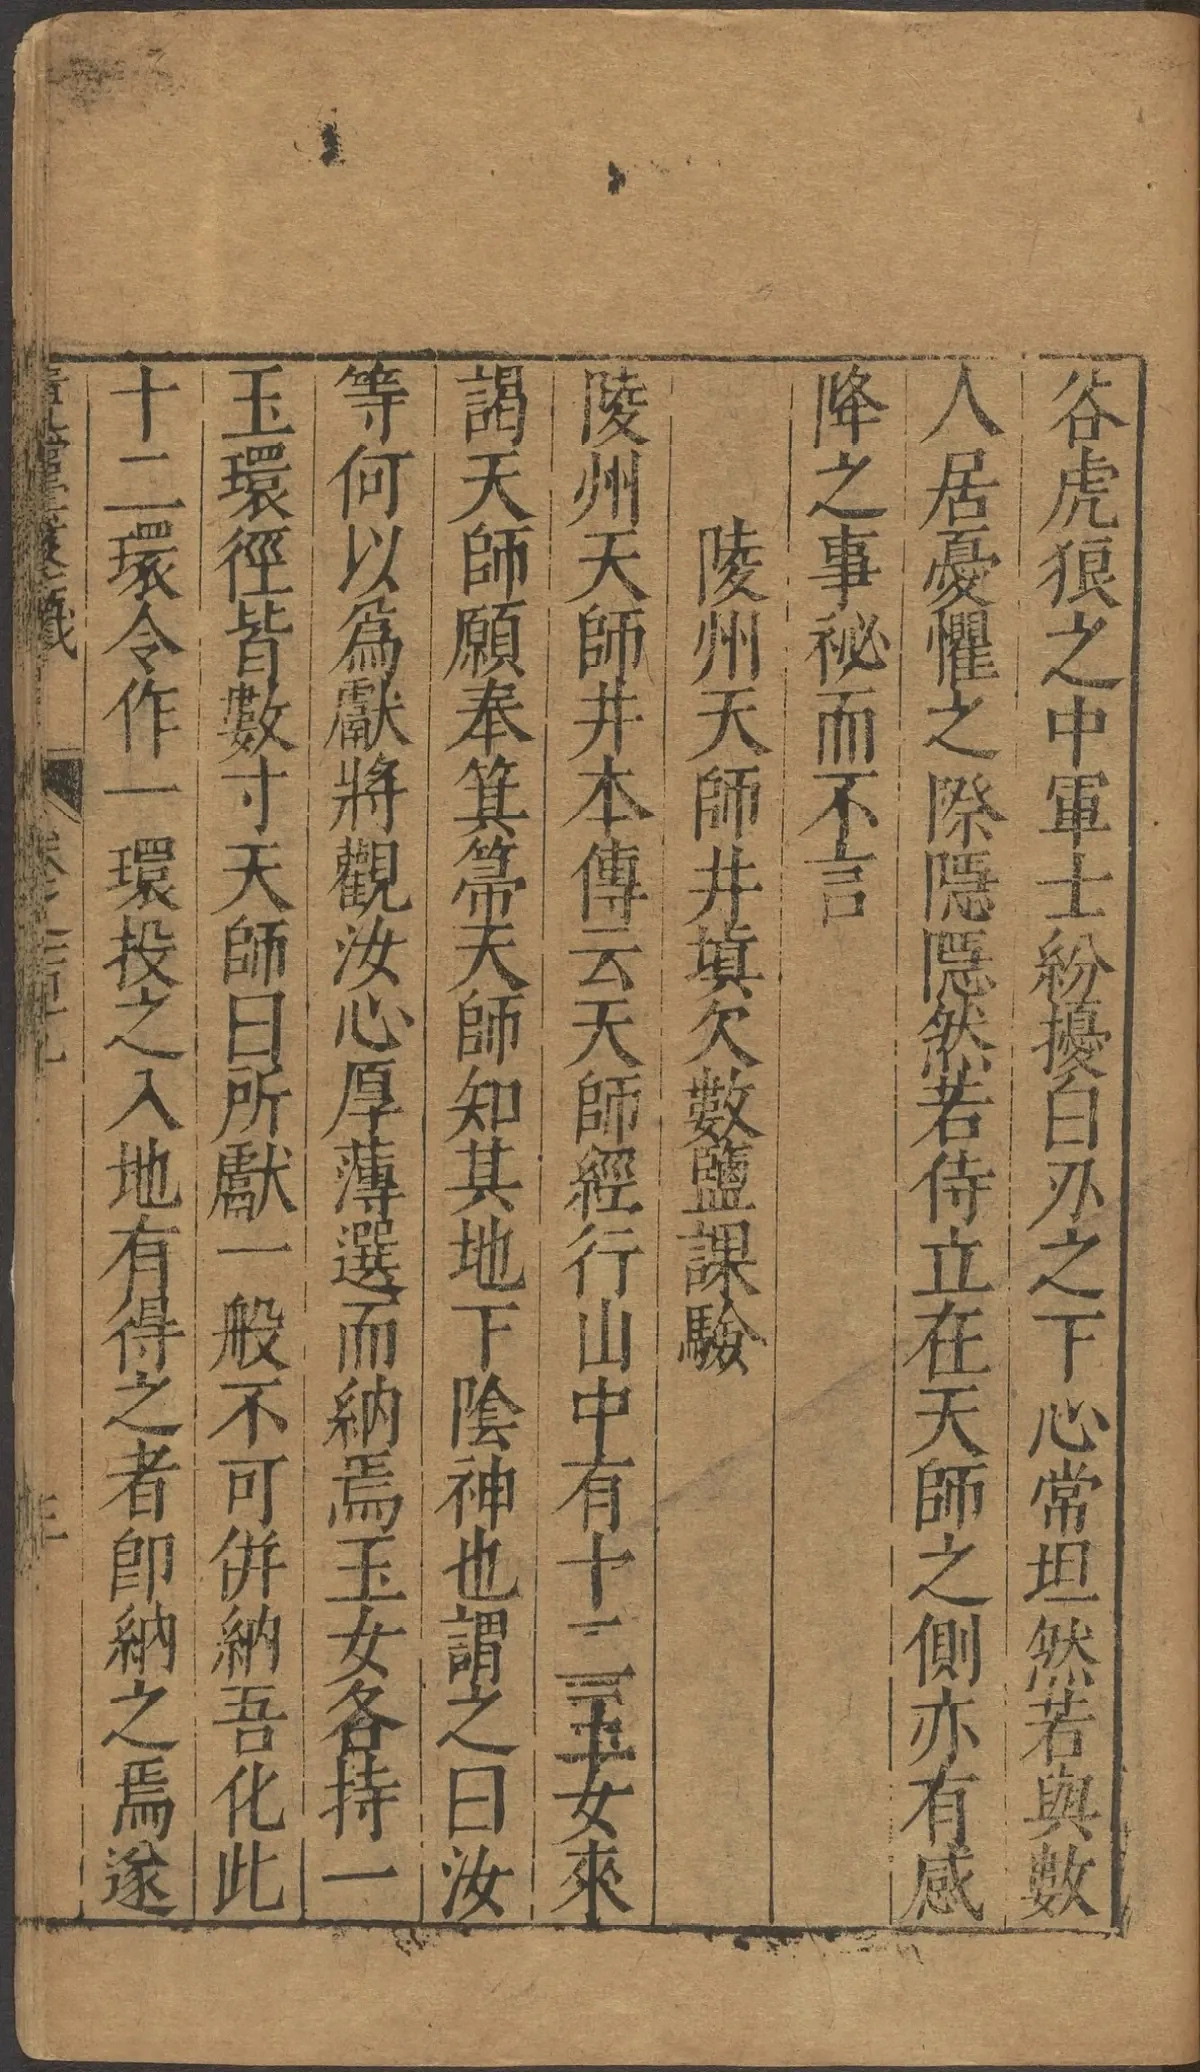 谷虎狼之中軍士紛擾白刃之下心常坦然若與數
人居憂懼之際隱隱然若侍立在天師之側亦有感
降之事祕而不言
陵州天師井填欠數鹽課驗
陵州天師井本傳云天師經行山中有十二玉女來
謁天師願奉箕箒天師知其地下陰神也謂之曰汝
等何以爲獻將觀汝心厚薄選而納焉玉女各持一
玉環徑皆數寸天師曰所獻一般不可併納吾化此
十二環令作一環投之入地有得之者卽納之焉遂